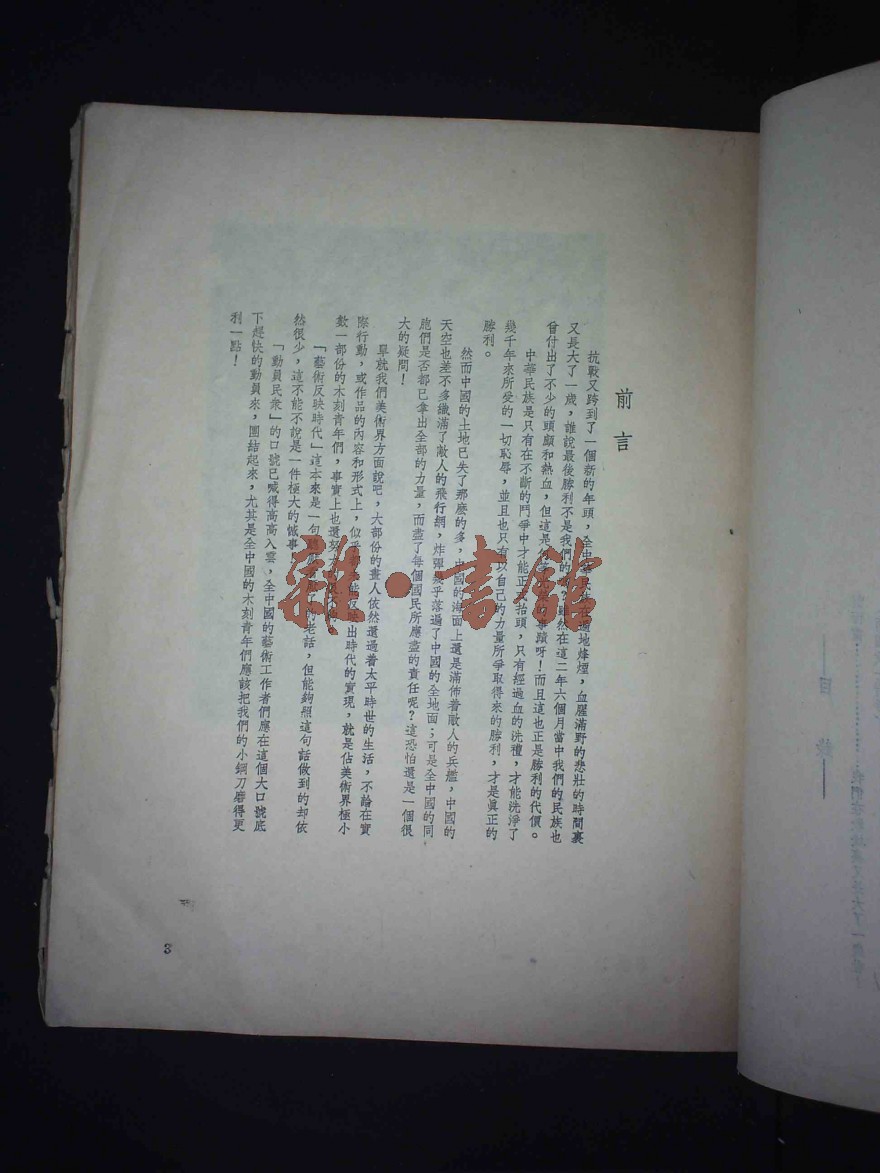 前言
抗戰又跨到了一個新的年頭，全中華民族在遍地烽煙，血腥滿野的悲壯的時間裏
又長大了一歲，誰說最後勝利不是我們的呢？雖然在這二年六個月當中我們的民族也
曾付出了不少的頭顱和熱血，但這是的事蹟呀！而且這也正是勝利的代價。
中華民族是只有在不斷的鬥爭中才能正又抬頭，只有經過血的洗禮，才能洗淨了
幾千年來所受的一切恥辱，並且也只有以自己的力量所爭取得來的勝利，才是眞正的
勝利。
然而中國的土地已失了那麽的多，中國的海面上還是滿佈着敵人的兵艦，中國的
天空也差不多織滿了敵人的飛行網，炸彈幾乎落遍了中國的全地面；可是全中國的同
胞們是否都已拿出全部的力量，而盡了每個國民所應盡的責任呢？這恐怕還是一個很
大的疑問！
單就我們美術界方面說吧，大部份的畫人依然還過着太平時世的生活，不論在實
際行動，或作品的內容和形式上，似乎都未能反映出時代的實現，就是佔美術界極小
數一部份的木刻青年們，事實上也還努力的很不夠。
「藝術反映時代」這本來是一句的老話，但能夠照這句話做到的却依
然很少，這不能不說是一件極大的憾事
「動員民衆」的口號已喊得高高入雲，全中國的藝術工作者們應在這個大口號底
下趕快的動員來，團結起來，尤其是全中國的木刻青年們應該把我們的小鋼刀磨得更
利一點！
3
雜·書館
目錄